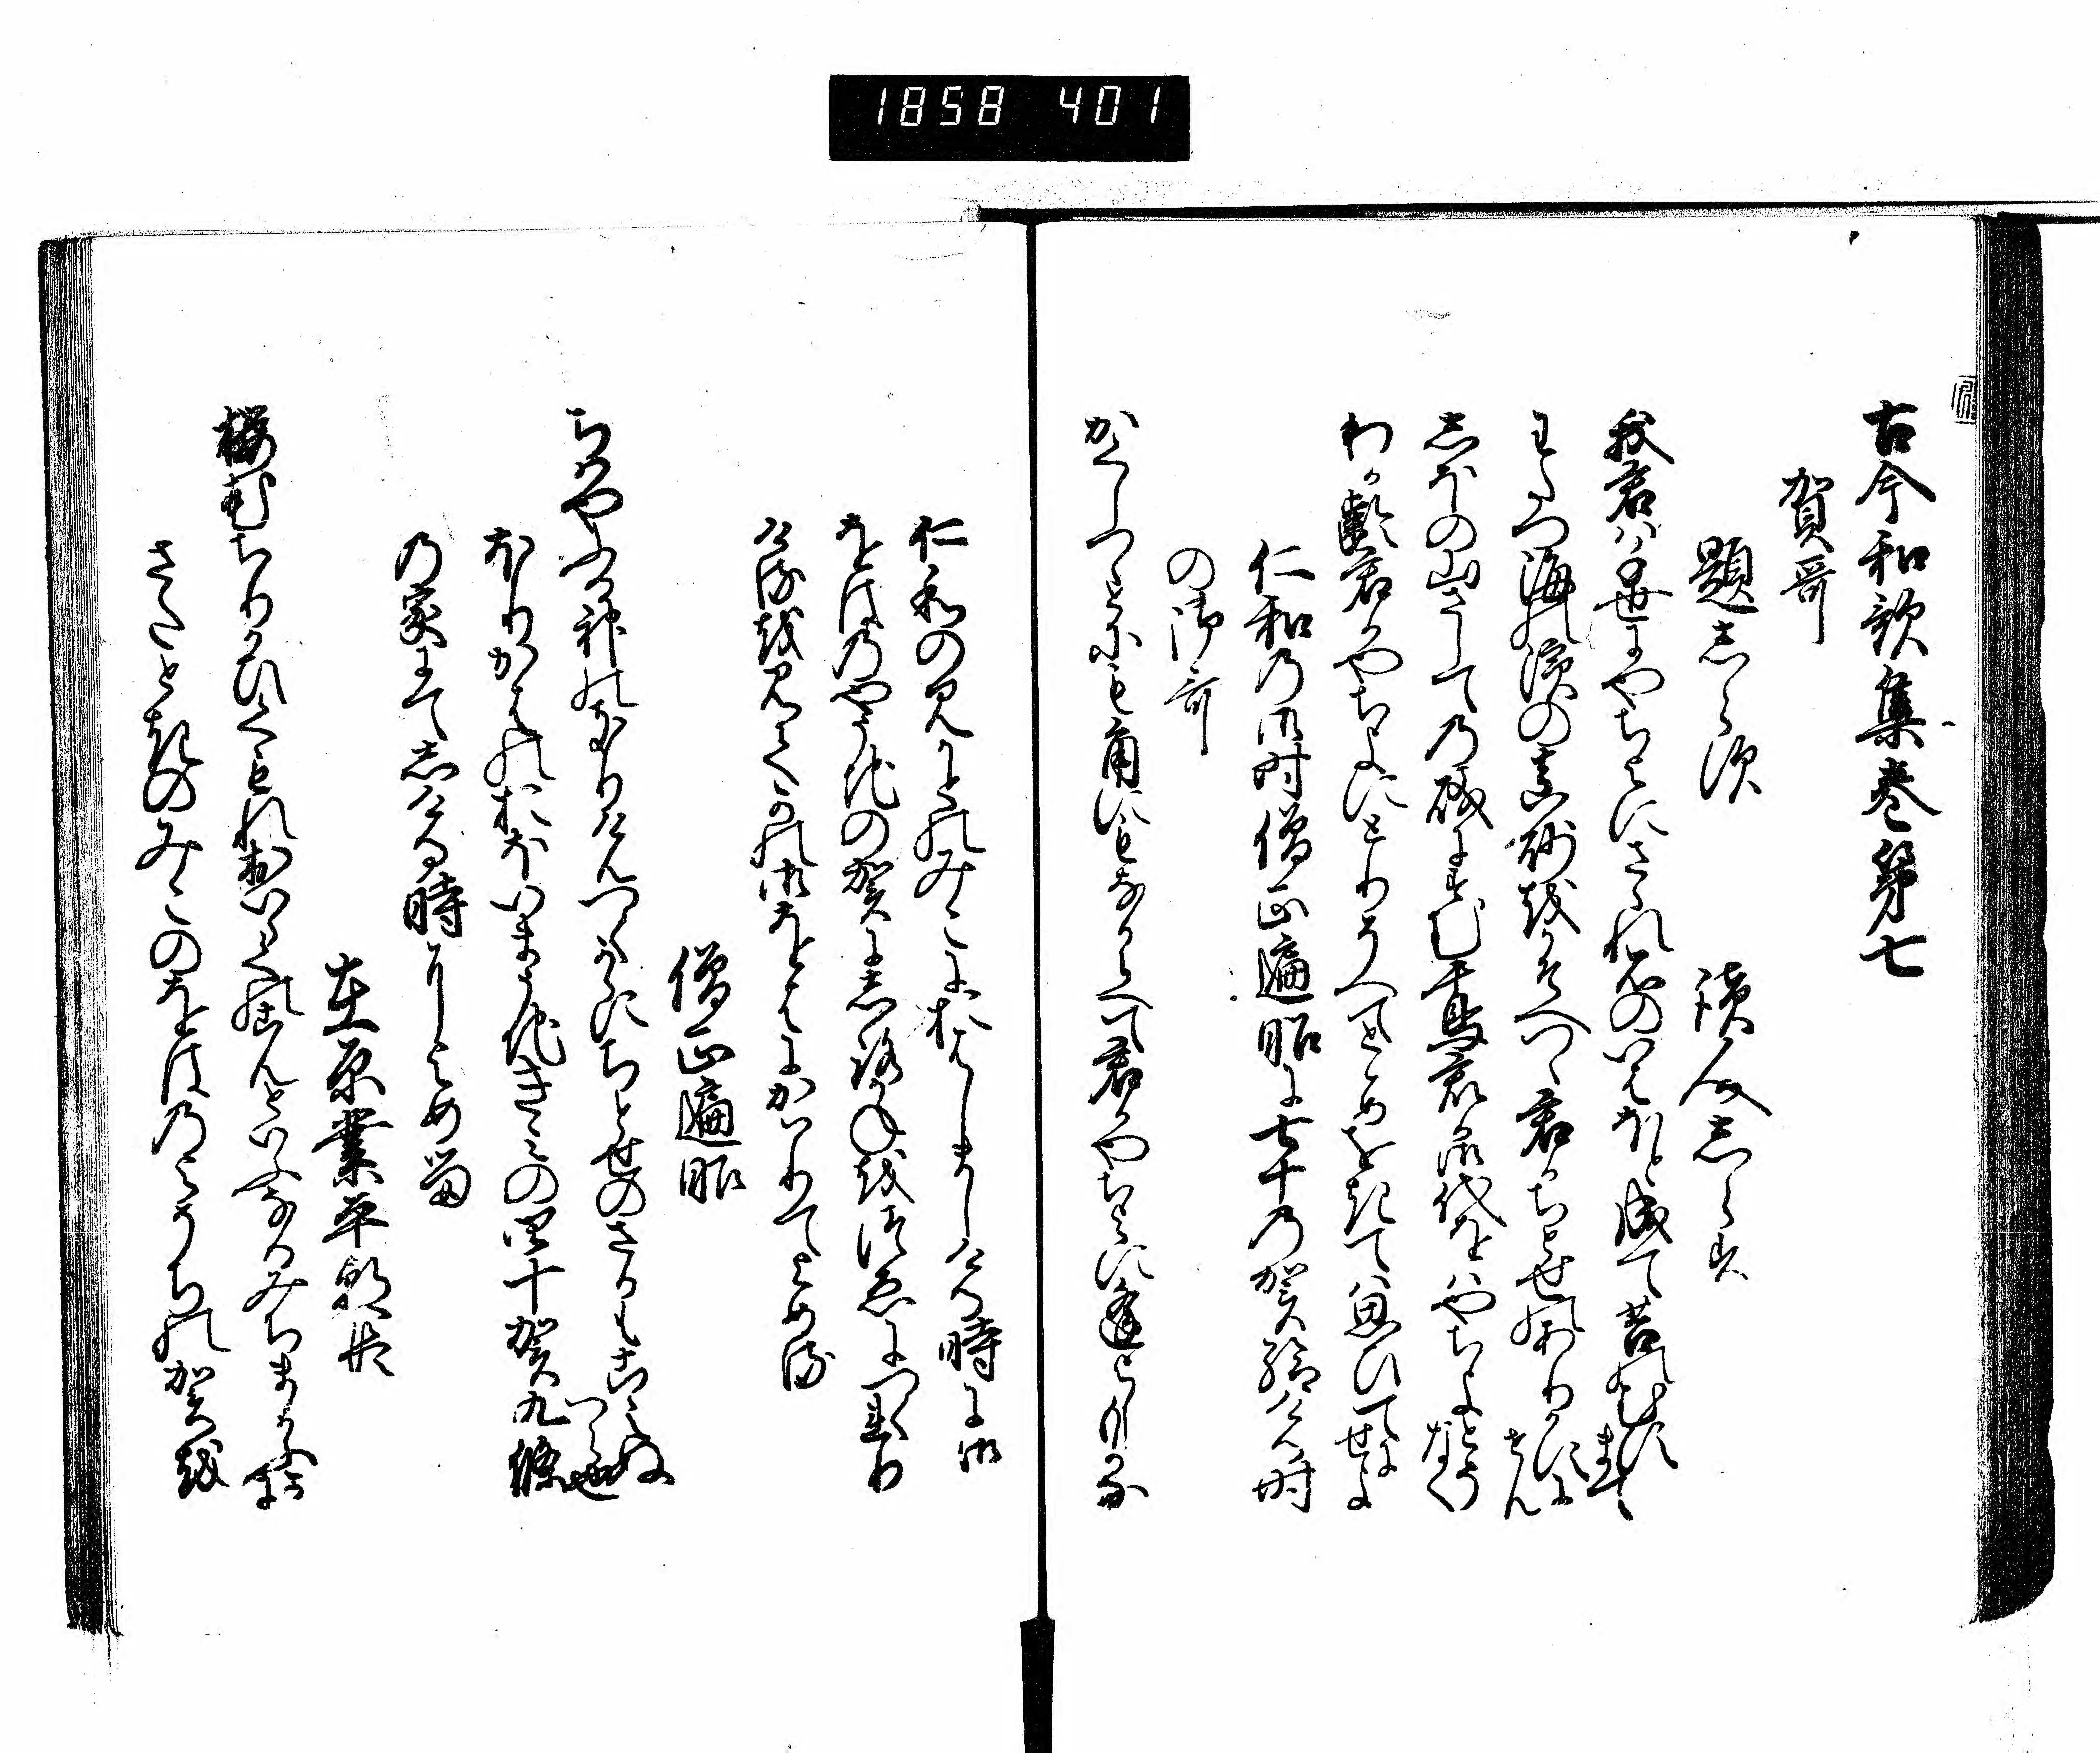 1858 401
古今和歌集巻第七
賀哥
題しらす 読人しらす
我君は千世にやちよにさゝれ石のいはほと成て苔のむすまて
わたつ海の濱の真砂をかそへつゝ君かちとせのありかすにせん
しほの山さしての磯にすむ千鳥君か御代をはやちよとそなく
わか齢君かやちよにとりそへてとゝめをきては思ひてにせよ
仁和の御時僧正遍昭に七十の賀給ける時
の御哥
かくしつゝとにもかくにもなからへて君かやちよに逢よしもかな
仁和の見かとのみこにおはしましける時に御
をはのやそちの賀にしろかねをつゑにつくれり
けるを見てかの御をはにかはりてよめる
僧正遍昭
ちはやふる神のきりけんつくからにちとせのさかもこえぬへら也
ほりかはのおほいまうちきみの四十賀九條
の家にてしける時によめる
在原業平朝臣
桜花ちりかひくもれおいらくのこんといふなるみちまかふかに
さたときのみこのをはのよそちの賀を